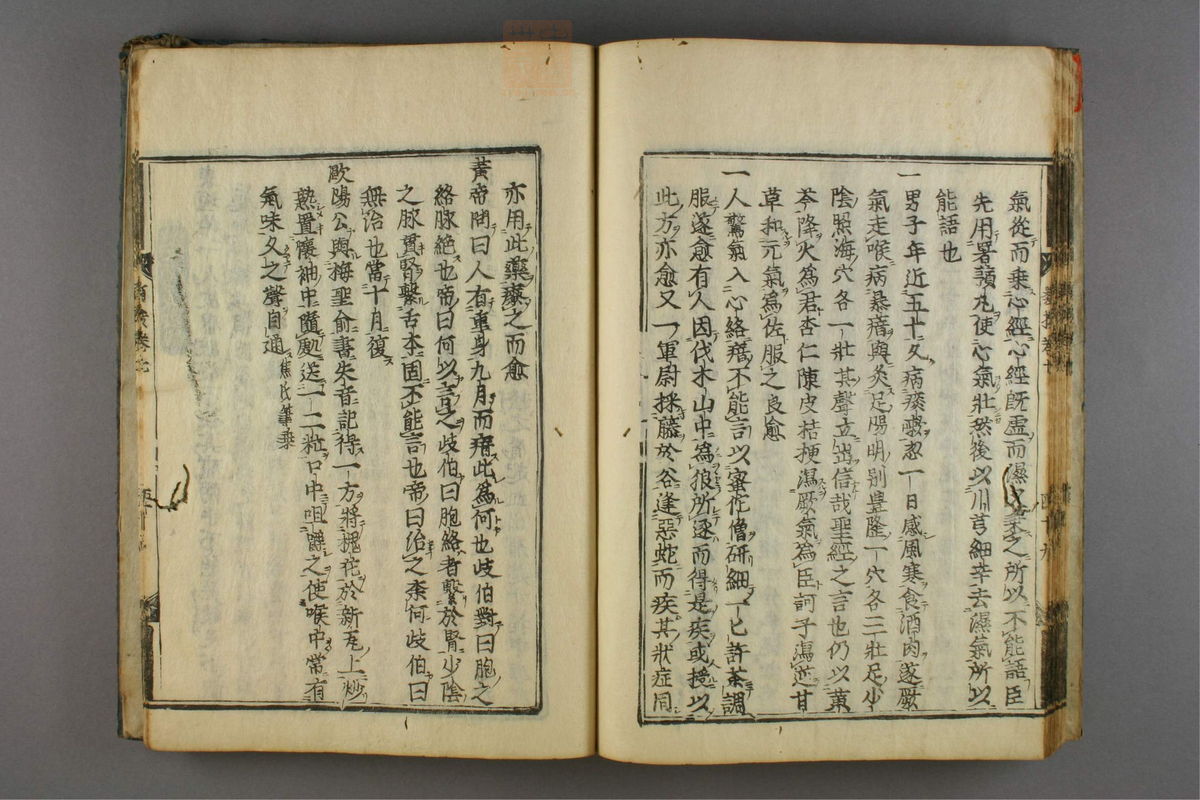 氣從而乘心經心經既虛而濕氣乘之所以不能語臣
先用署預丸使心氣壯然後以川芎細辛去濕氣所以
能語也
一男子年近五十久病痰嗽忽一日感風寒食酒肉遂厥
氣走喉病暴瘖與灸足陽明別豊隆一穴各三壯足少
陰照海穴各一壯其聲立出信哉聖經之言也仍以黃
芩降火爲君杏仁陳皮桔梗瀉厥氣爲臣訶子瀉逆甘
草和元氣爲佐服之良愈
一人驚氣入心絡瘖不能言以蜜佗僧研細一匕許茶調
服遂愈有人因伐木山中爲狼所逐而得是疾或授以
此方亦愈又一軍尉採藤於谷逢惡蛇而疾其狀症同
亦用此藥療之而愈
黃帝問曰人有重身九月而瘖此爲何也岐伯對曰胞之
絡脉絕也帝曰何以言之歧伯曰胞絡者繫於腎少陰
之脉貫腎繫舌本固不能言也帝曰治之奈何歧伯曰
無治也當十月復
歐陽公與梅聖俞書失音記得一方將槐花於新瓦上炒
熟置懷袖中隨處送一二粒口中咀嚼之使喉中常有
氣味久之聲自通 焦氏筆乘